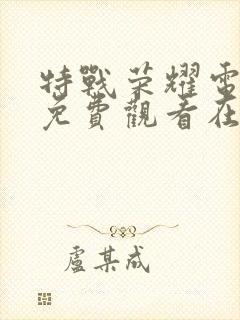 特戰荣耀電
免費觀看在
盧某成